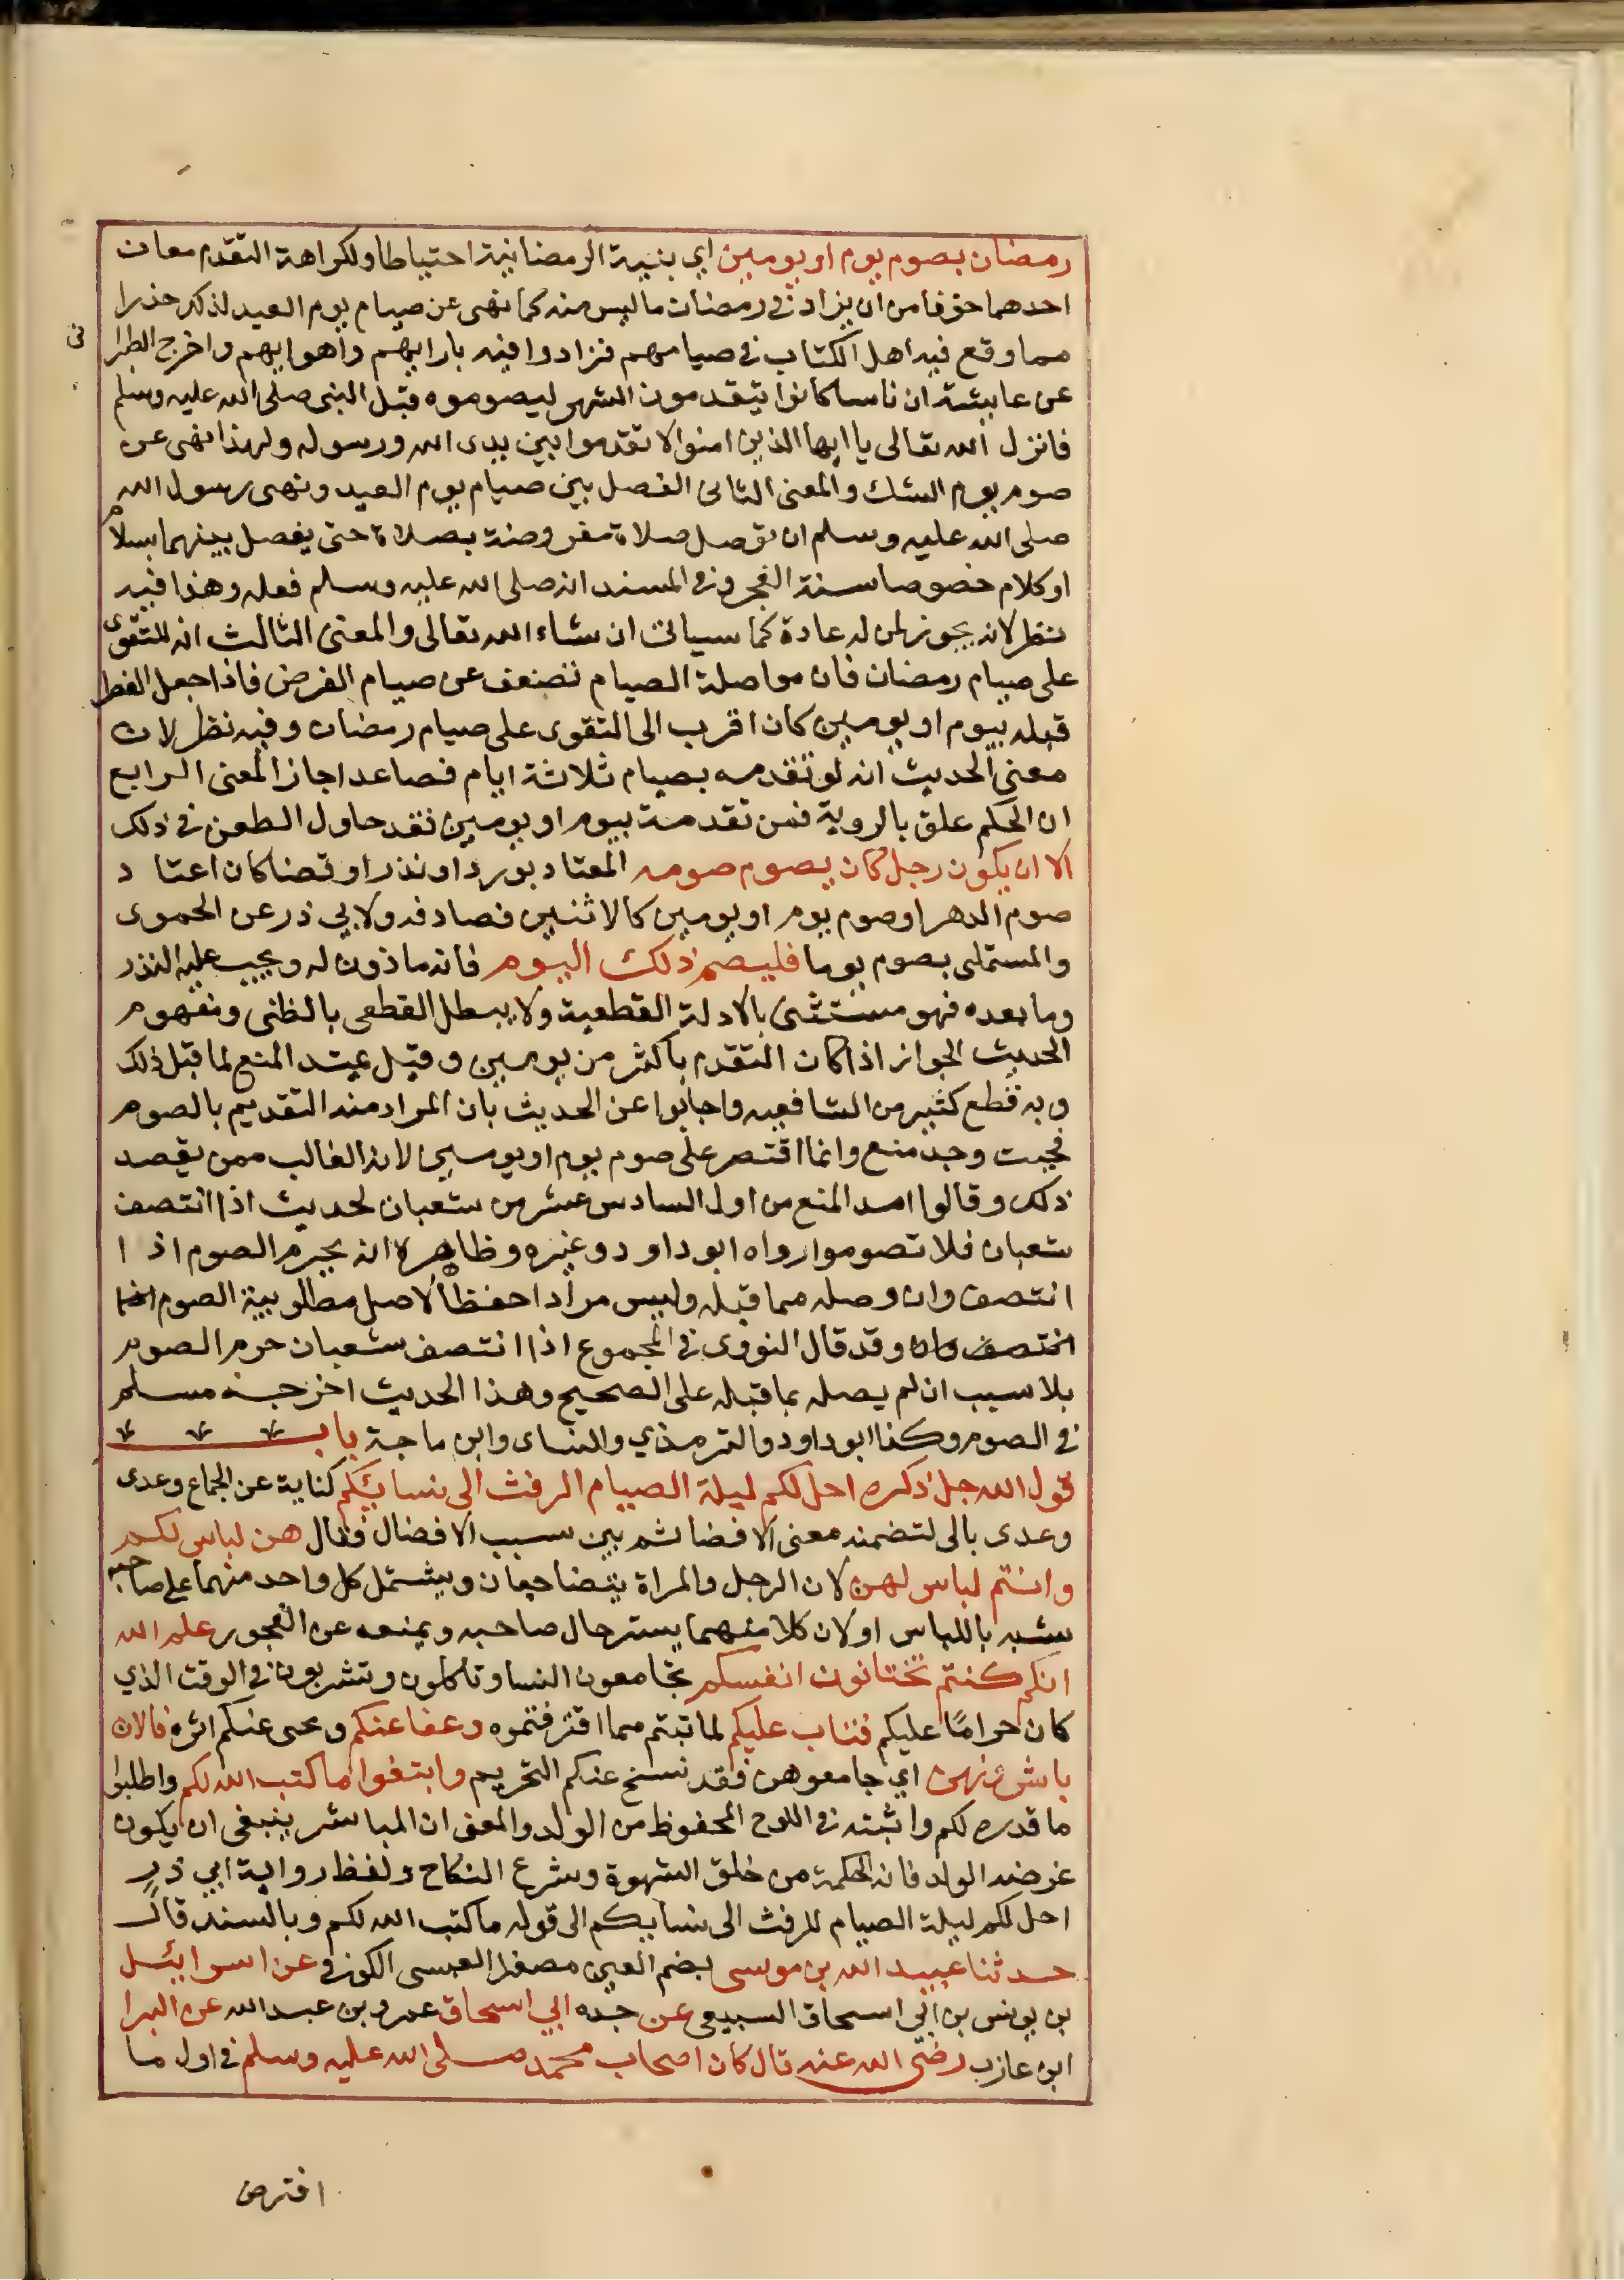 رمضان بصوم يوم او يومين اي بنية الرمضانية احتياطا ولكراهة التقدم معان
احدهما خوفا من ان يزاد في رمضان ما ليس منه كما نهى عن صيام يوم العيد لذلك حذرا
مما وقع فيه اهل الكتاب في صيامهم فزادوا فيه بارايهم واهوايهم واخرج الطبرا
ني
عن عايشة ان ناسا كانوا يتقدمون الشهر ليصوموه قبل النبي صلى الله عليه وسلم
فانزل الله تعالى يا ايها الذين امنوا لا تقدموا بين يدى الله ورسوله ولهذا نهى عن
صوم يوم الشك والمعنى الثانى الفصل بين صيام يوم العيد ونهى رسول الله
صلى الله عليه وسلم ان توصل صلاة مفروضة بصلاة حتى يفصل بينهما بسلام
او كلام خصوصا سنة الفجر وفي المسند انه صلى الله عليه وسلم فعله وهذا فيه
نظر لانه يجوز لمن له عادة كما سياتى ان شاء الله تعالى والمعنى الثالث انه للتقوى
على صيام رمضان فان مواصلة الصيام تضعف عن صيام الفرض فاذا جعل الفطر
قبله بيوم او يومين كان اقرب الى التقوى على صيام رمضان وفيه نظر لان
معنى الحديث انه لو تقدمه بصيام ثلاثة ايام فصاعدا جاز المعنى الرابع
ان الحكم علق بالروية فمن تقدمه بيوم او يومين فقد حاول الطعن في ذلك
الا ان يكون رجل كان يصوم صومه المعتاد بورد او نذر او قضا كان اعتا د
صوم الدهر او صوم يوم او يومين كالاثنين فصادفه ولابي ذر عن الحموى
والمستملى بصوم يوما فليصم ذلك اليوم فانه ماذون له ويجب عليه النذر
وما بعده فهو مستثنى بالادلة القطعية ولا يبطل القطعى بالظنى ومفهوم
الحديث الجواز اذا كان التقدم باكثر من يومين وقيل يمتد المنع لما قبل ذلك
وبه قطع كثير من الشافعيه واجابوا عن الحديث بان المراد منه التقديم بالصوم
فحيث وجد منع وانما اقتصر على صوم يوم او يومين لانه الغالب ممن يقصد
ذلك وقالوا امد المنع من اول السادس عشر من شعبان لحديث اذا انتصف
شعبان فلا تصوموا رواه ابو داود وغيره وظاهره انه يحرم الصوم اذ ا
انتصف وان وصله مما قبله وليس مرادا حفظا لاصل مطلوبية الصوم
وقد قال النووى في المجموع اذا انتصف شعبان حرم الصوم
بلا سبب ان لم يصله بما قبله على الصحيح وهذا الحديث اخرجه مسلم
في الصوم وكذا ابو داود والترمذي والنساى وابن ماجة باب
قول الله جل ذكره احل لكم ليلة الصيام الرفث الى نسايكم كناية عن الجماع وعدى
وعدى بالى لتضمنه معنى الافضا ثم بين سبب الافضال فقال هن لباس لكم
وانتم لباس لهن لان الرجل والمراة يتضاجعان ويشتمل كل واحد منهما على صاحبه
شبه باللباس او لان كلا منهما يستر حال صاحبه ويمنعه عن الفجور علم الله
انكم كنتم تختانون انفسكم تجامعون النسا وتاكلون وتشربون في الوقت الذي
كان حراما عليكم فتاب عليكم لما تبتم مما اقترفتموه وعفا عنكم ومحى عنكم اثره فالان
باشروهن اي جامعوهن فقد نسخ عنكم التحريم وابتغوا ما كتب الله لكم واطلبوا
ما قدره لكم واثبته في اللوح المحفوظ من الولد والمعنى ان المباشر ينبغى ان يكون
غرضه الولد فانه الحكمة من خلق الشهوة وشرع النكاح ولفظ رواية ابي ذر
احل لكم ليلة الصيام الرفث الى نسايكم الى قوله ما كتب الله لكم وبالسند قال
حدثنا عبيد الله بن موسى بضم العين مصغرا العبسى الكوفى عن اسرائيل
بن يونس بن ابى اسحاق السبيعى عن جده ابي اسحاق عمرو بن عبد الله عن البرا
ابن عازب رضى الله عنه قال كان اصحاب محمد صلى الله عليه وسلم في اول ما
افترض